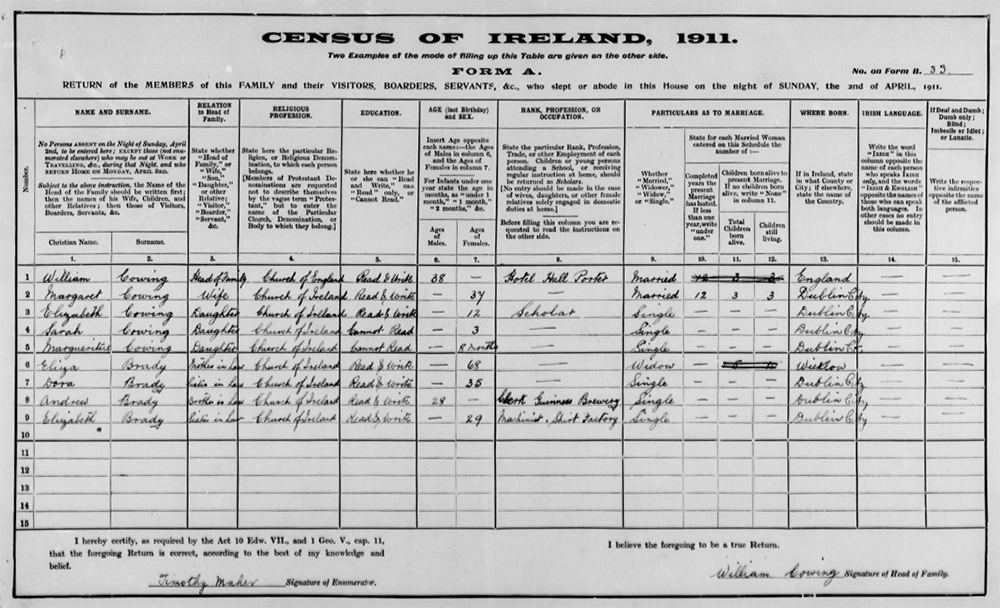 CENSUS OF IRELAND, 1911.
Two Examples of the mode of filling up this Table are given on the other side.
FORM A.
No. on Form B. 33
RETURN of the MEMBERS of this FAMILY and their VISITORS, BOARDERS, SERVANTS, &c., who slept or abode in this House on the night of SUNDAY, the 2nd of APRIL, 1911.
Number.
NAME AND SURNAME.
No Persons ABSENT on the Night of Sunday, April 2nd, to be entered here; EXCEPT those (not enumerated elsewhere) who may be out at WORK or TRAVELLING, &c., during that Night, and who RETURN HOME ON MONDAY, APRIL 3RD.
Subject to the above instruction, the Name of the Head of the Family should be written first; then the names of his Wife, Children, and other Relatives; then those of Visitors, Boarders, Servants, &c.
Christian Name. Surname.
1. 2.
RELATION to Head of Family.
State whether "Head of Family," or "Wife," "Son," "Daughter," or other Relative; "Visitor," "Boarder," "Servant," &c.
3.
RELIGIOUS PROFESSION.
State here the particular Religion, or Religious Denomination, to which each person belongs.
[Members of Protestant Denominations are requested not to describe themselves by the vague term "Protestant," but to enter the name of the Particular Church, Denomination, or Body to which they belong.]
4.
EDUCATION.
State here whether he or she can "Read and Write," can "Read" only, or "Cannot Read."
5.
AGE (last Birthday) and SEX.
Insert Age opposite each name:—the Ages of Males in column 6, and the Ages of Females in column 7.
For Infants under one year state the age in months, as "under 1 month," "1 month," "2 months," &c.
Ages of Males. Ages of Females.
6. 7.
RANK, PROFESSION, OR OCCUPATION.
State the particular Rank, Profession, Trade, or other Employment of each person. Children or young persons attending a School, or receiving regular instruction at home, should be returned as Scholars.
[No entry should be made in the case of wives, daughters, or other female relatives solely engaged in domestic duties at home.]
Before filling this column you are requested to read the instructions on the other side.
8.
PARTICULARS AS TO MARRIAGE.
Whether "Married," "Widower," "Widow," or "Single."
9.
State for each Married Woman entered on this Schedule the number of:—
Completed years the present Marriage has lasted. If less than one year, write "under one."
10.
Children born alive to present Marriage. If no children born alive, write "None" in column 11.
Total Children born alive. Children still living.
11. 12.
WHERE BORN.
If in Ireland, state in what County or City; if elsewhere, state the name of the Country.
13.
IRISH LANGUAGE.
Write the word "IRISH" in this column opposite the name of each person who speaks IRISH only, and the words "IRISH & ENGLISH" opposite the names of those who can speak both languages. In other cases no entry should be made in this column.
14.
If Deaf and Dumb; Dumb only; Blind; Imbecile or Idiot; or Lunatic.
Write the respective infirmities opposite the name of the afflicted person.
15.
1 William Cowing Head of Family Church of England Read & Write 38 — Hotel Hall Porter Married 12 3 3 England
2 Margaret Cowing Wife Church of Ireland Read & Write — 37 — Married 12 3 3 Dublin City
3 Elizabeth Cowing Daughter Church of Ireland Read & Write — 12 Scholar Single — — — Dublin City
4 Sarah Cowing Daughter Church of Ireland Cannot Read — 3 — Single — — — Dublin City
5 Cowing Daughter Church of Ireland Cannot Read — 8 months — Single — — — Dublin
6 Eliza Brady Mother in Law Church of Ireland Read & Write — 68 — Widow — Wicklow
7 Dora Brady Sister in Law Church of Ireland Read & Write — 35 — Single — — — Dublin City
8 Andrew Brady Brother in Law Church of Ireland Read & Write 28 — Clerk Guinness Brewery Single — — — Dublin City
9 Elizabeth Brady Sister in Law Church of Ireland Read & Write — 29 Machinist, Shirt Factory Single — — — Dublin City
10
11
12
13
14
15
I hereby certify, as required by the Act 10 Edw. VII., and 1 Geo. V., cap. 11,
that the foregoing Return is correct, according to the best of my knowledge and
belief.
Timothy Maher Signature of Enumerator.
I believe the foregoing to be a true Return.
William Cowing Signature of Head of Family.